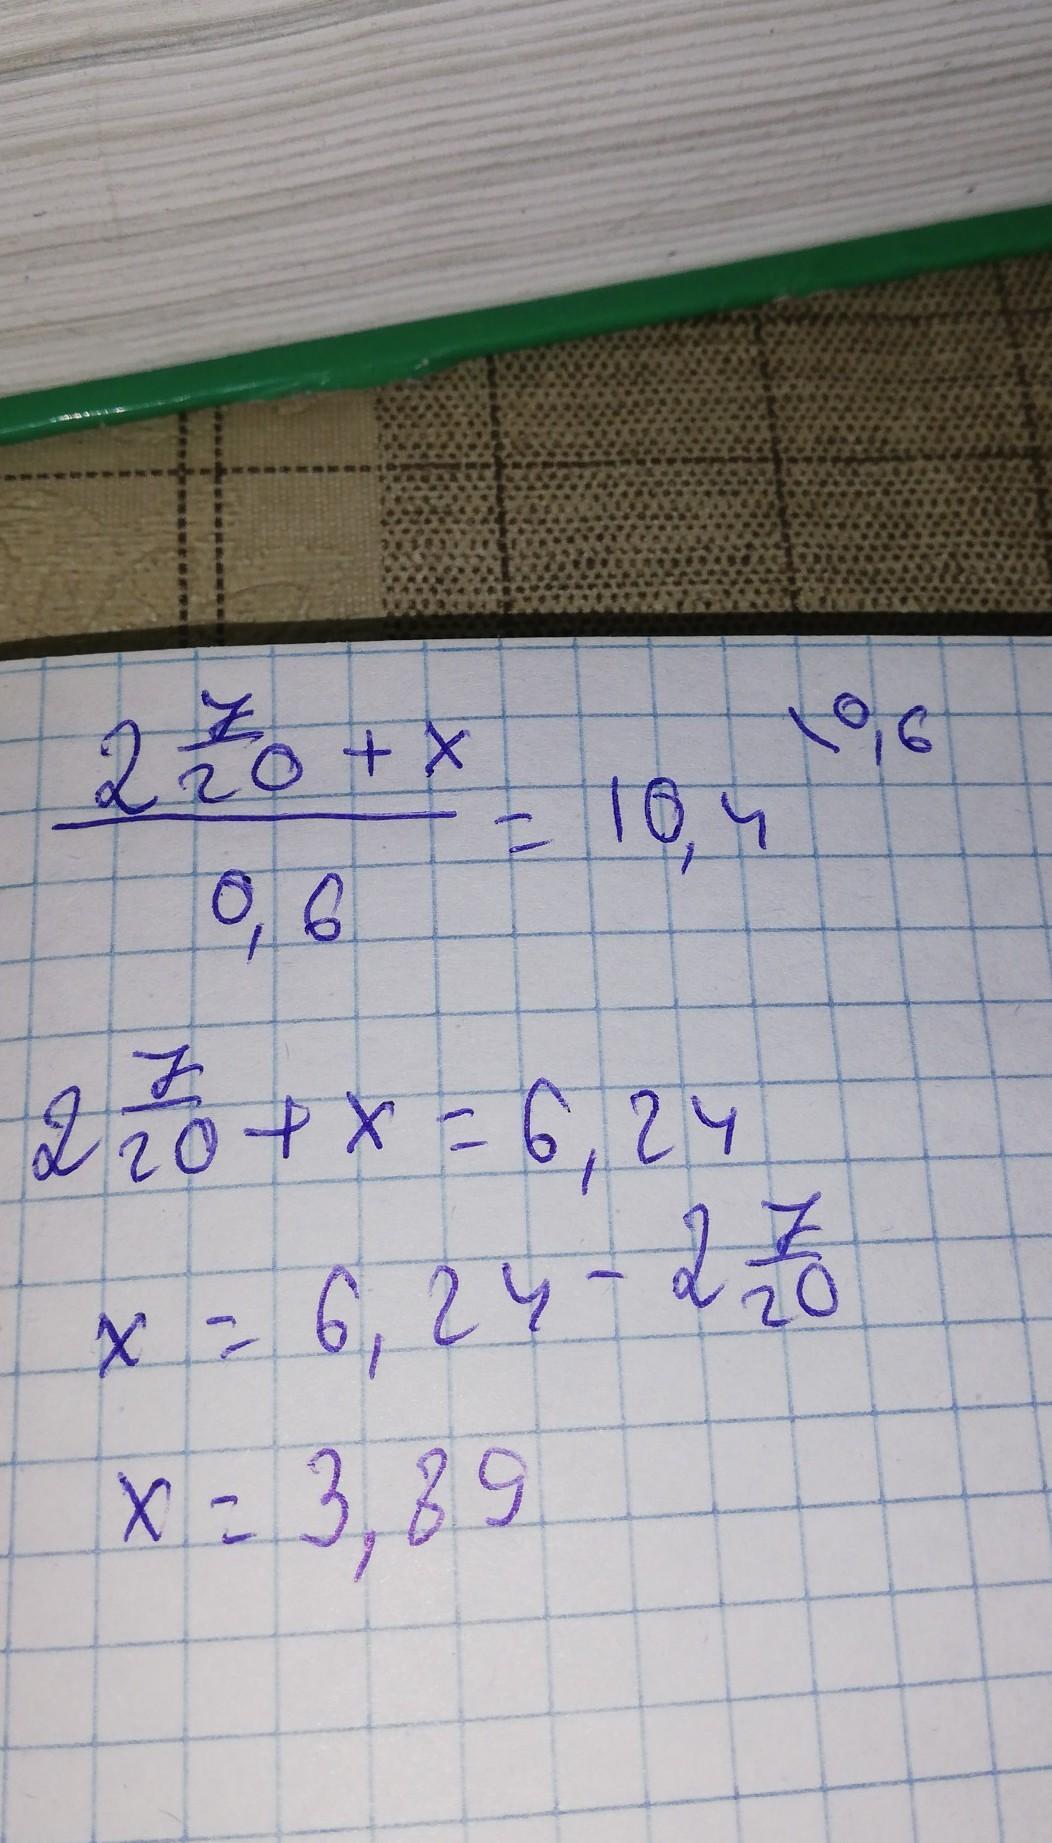 (2 7/20 + x)/0,6 = 10,4 \0,6
2 7/20 + x = 6,24
x = 6,24 - 2 7/20
x = 3,89